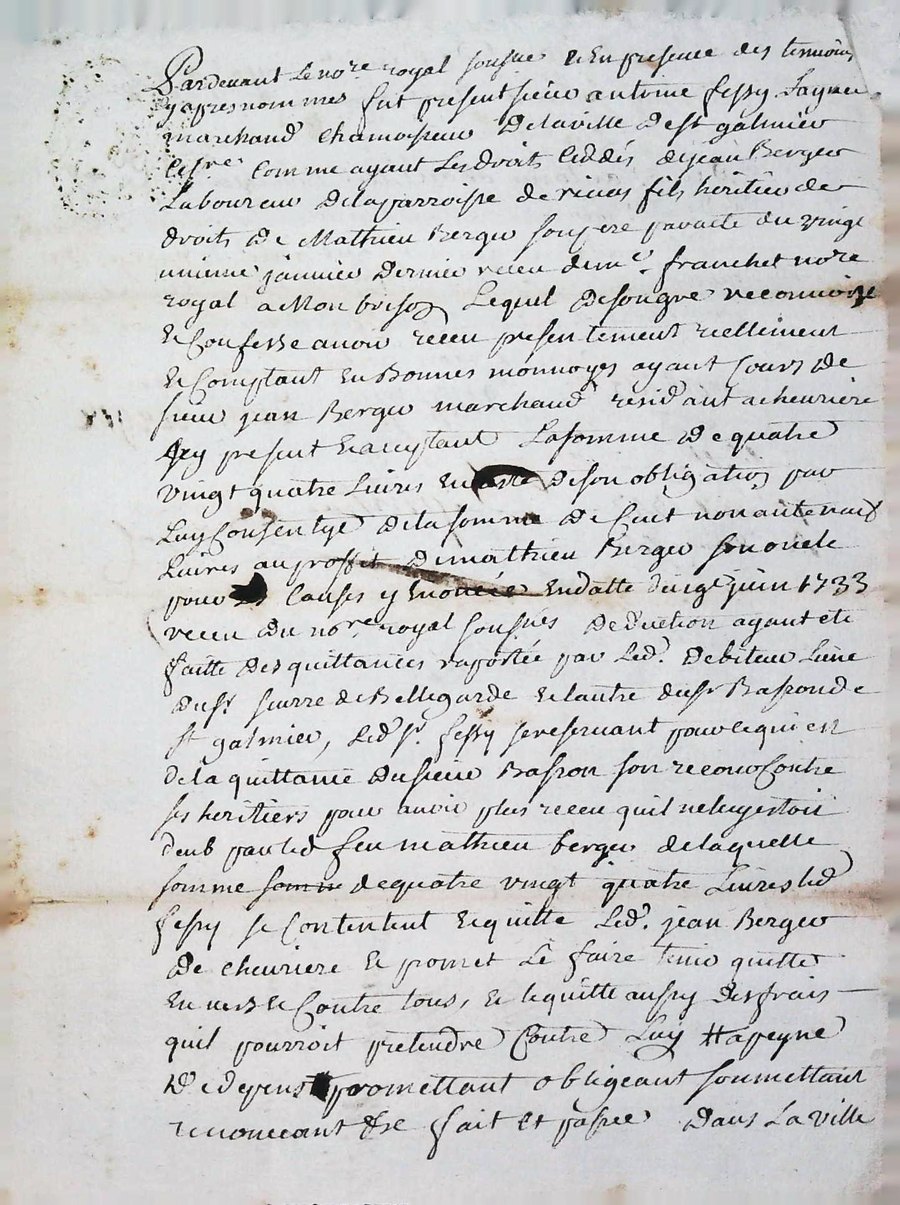 Pardevant le nore royal soussne & En presence des temoins
cy apres nommes fut present sieur antoine fessy
marchand chamoiseur de la ville de st galmier
comme ayant les droits ceddés de jean Berger
Laboureur de la parroisse de rivas fils heritier de
droits de Mathieu Berger son pere par acte du vingt
unieme janvier dernier receu de me. franchet nore
royal a Mon brison Lequel de son gre reconnoist
& Confesse avoir receu presentement reellement
& Comptant En Bonnes monnoyes ayant cours de
sieur jean Berger marchand residant a chevriere
Icy present & acceptant La somme de quatre
vingt quatre Livres En reste de son obligation par
Luy Consentye de la somme de Cent nonante neuf
Livres au proffit de mathieu Berger son oncle
pour les causes y Enoncée En datte du juin 1733
receu du nore. royal soussnés deduction ayant eté
faitte des quittances raportée par Led. debiteur Lune
du sr. de Bellegarde & lautre du sr Basson de
st galmier, Led sr. fessy se reservant pour ce qui est
de la quittance du sieur Basson son recour Contre
ses heritiers pour avoir plus receu quil ne luy estoit
deub par led feu mathieu berger de laquelle
somme somme de quatre vingt quatre Livres led
fessy se Contentent & quitte Led. jean Berger
de chevriere & promet Le faire tenir quitte
En vers & Contre tous, & le quitte aussy des frais
quil pourroit pretendre Contre Luy a peyne
de depens promettant obligeant soumettant
renonceant &c fait et passée dans La ville